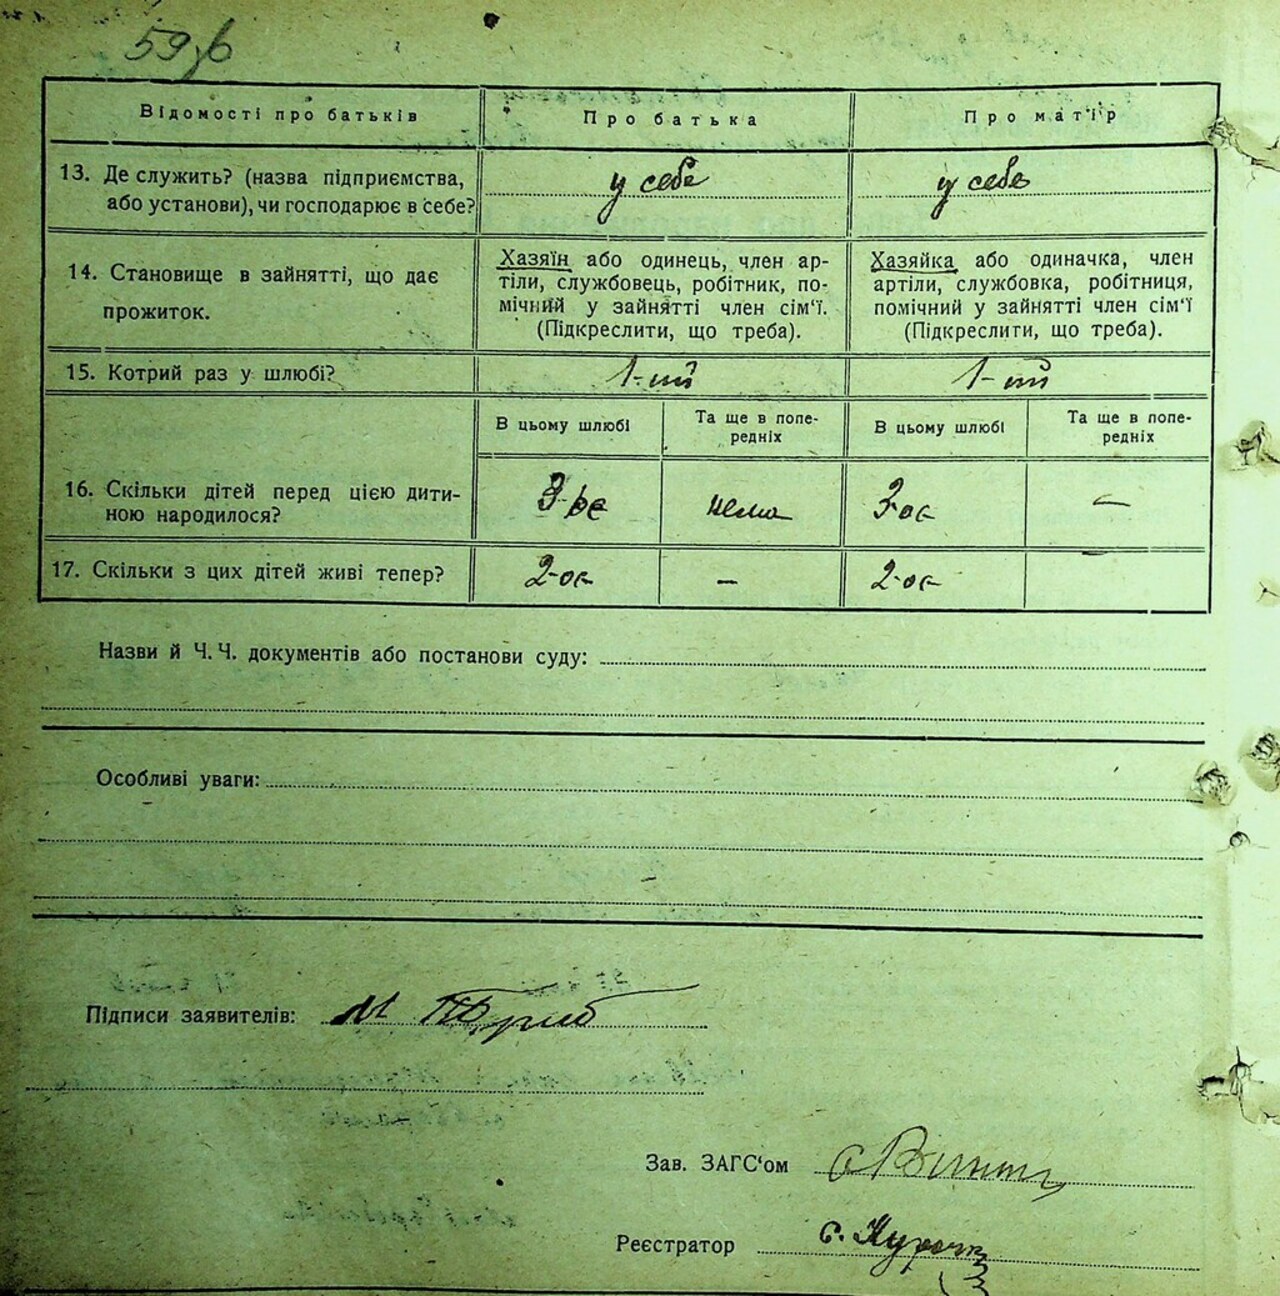 Відомості про батьків
Про батька
Про матір
13. Де служить? (назва підприємства,
або установи), чи господарює в себе?
у себе
у себе
14. Становище в зайнятті, що дає
прожиток.
Хазяїн або одинець, член ар-
тілі, службовець, робітник, по-
мічний у зайнятті член сім'ї.
(Підкреслити, що треба).
Хазяйка або одиначка, член
артілі, службовка, робітниця,
помічний у зайнятті член сім'ї
(Підкреслити, що треба).
15. Котрий раз у шлюбі?
1-ий
1-ий
В цьому шлюбі
Та ще в попе-
редніх
В цьому шлюбі
Та ще в попе-
редніх
16. Скільки дітей перед цією дити-
ною народилося?
нема
—
17. Скільки з цих дітей живі тепер?
2-ое
—
2-ое
—
Назви й Ч. Ч. документів або постанови суду:
Особливі уваги:
Підписи заявителів: М
Зав. ЗАГС'ом
Реєстратор